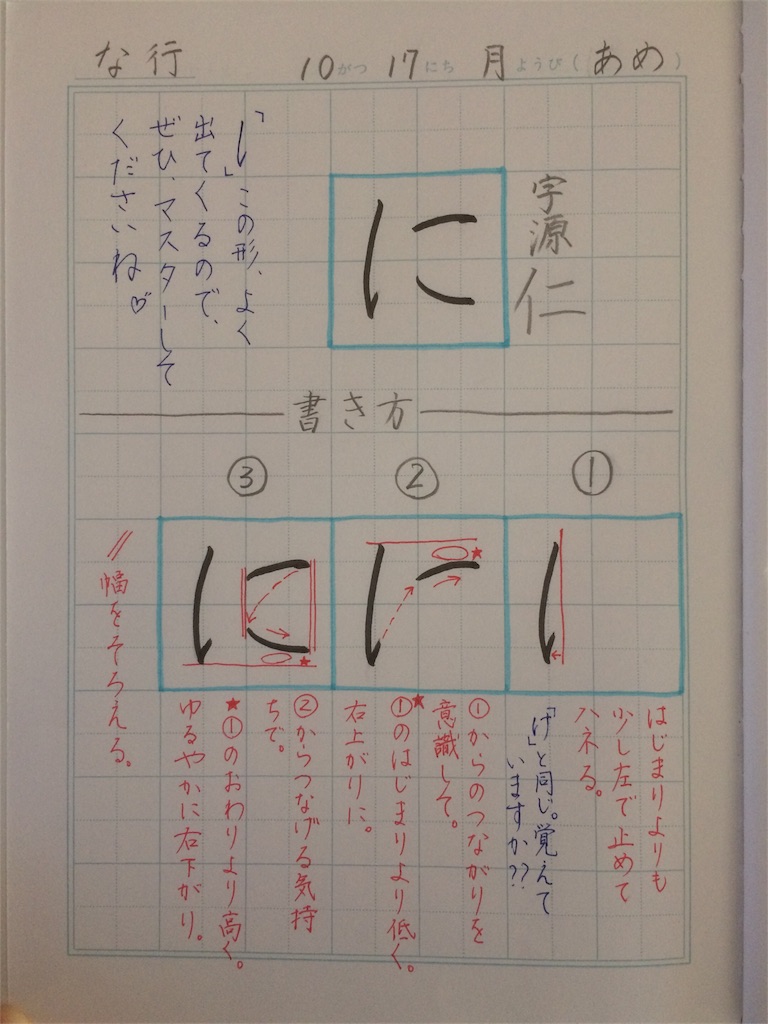 な行 10がつ17にち 月ようび(あめ)
字源 仁
に
「い」この形、よく
出てくるので、
ぜひ、マスターして
くださいね♡
書き方
①
②
③
に
はじまりよりも
少し左で止めて
ハネる。
「け」と同じ。覚えて
いますか??
①からのつながりを
意識して。
★①のはじまりより低く。
右上がりに。
②からつなげる気持
ちで。
★①のおわりより高く。
ゆるやかに右下がり。
//幅をそろえる。